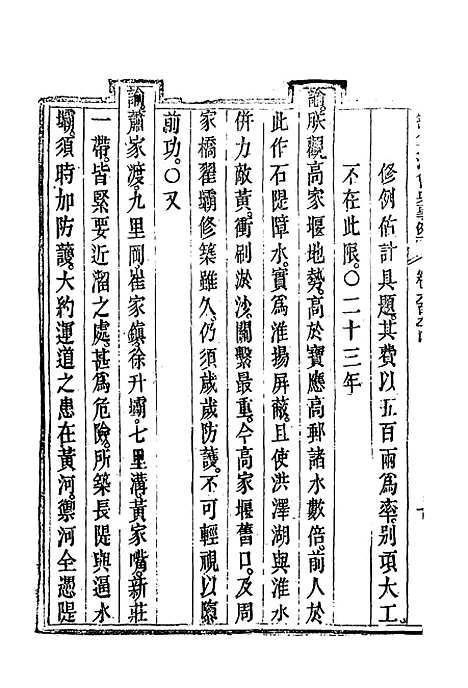 修例估計具題。其費以五百兩為率。別項大工。
不在此限。〇二十三年
諭。朕觀高家堰地勢。高於寶應高郵諸水數倍。前人於
此作石隄障水。實為淮揚屏蔽。且使洪澤湖與淮水
併力敵黃。衝刷淤沙。關繫最重。今高家堰舊口。及周
家橋翟壩修築雖久。仍須歲歲防護。不可輕視以隳
前功。〇又
諭。蕭家渡。九里岡。崔家鎮。徐升壩。七里溝。黃家嘴。新莊
一帶。皆緊要近溜之處。甚為危險。所築長隄與逼水
壩。須時加防護。大約運道之患在黃河。禦河全憑隄